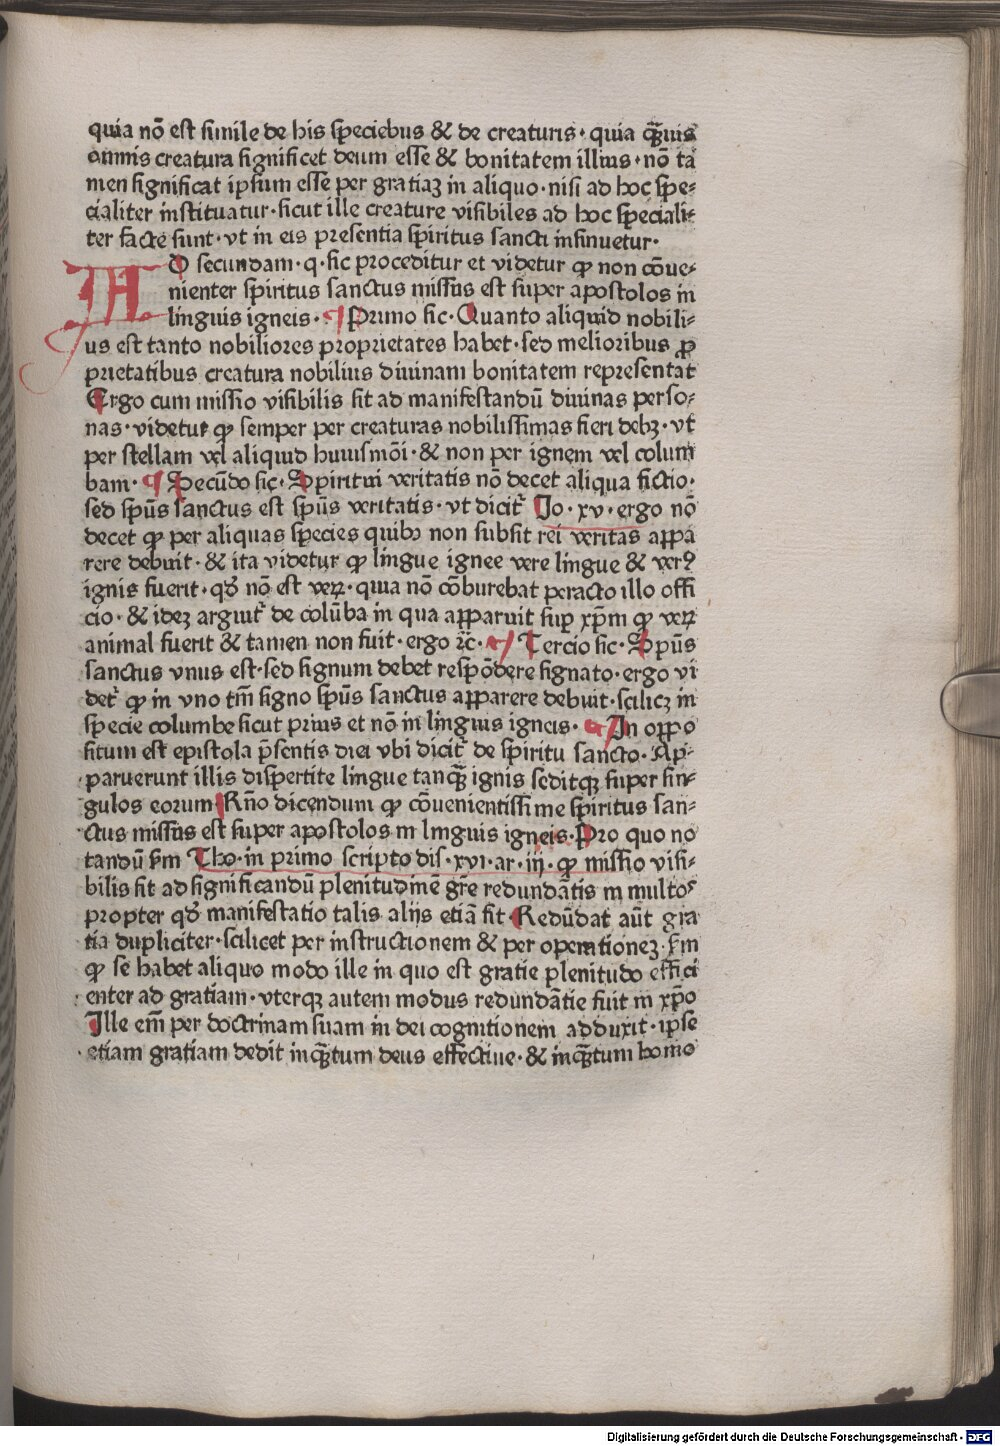 quia nõ est simile de his speciebus & de creaturis· quia q̃uis
omnis creatura significet deum esse & bonitatem illius· nõ ta
men significat ipsum esse per gratiaʒ in aliquo· nisi ad hoc spe⸗
cialiter instituatur· sicut ille creature visibiles ad hoc speciali⸗
ter facte sunt· vt in eis presentia spiritus sancti insinuetur·
AD secundam· q· sic proceditur et videtur ꝙ non cõue⸗
nienter spiritus sanctus missus est super apostolos in
linguis igneis· ¶ Primo sic· Quanto aliquid nobili⸗
us est tanto nobiliores proprietates habet· sed melioribus ꝓ
prietatibus creatura nobilius diuinam bonitatem representat
Ergo cum missio visibilis sit ad manifestandū diuinas perso⸗
nas· videtur ꝙ semper per creaturas nobilissimas fieri debʒ· vt
per stellam vel aliquid huiusmõi· & non per ignem vel colum
bam· ¶ Secūdo sic· Spiritui veritatis nõ decet aliqua fictio·
sed spūs sanctus est spūs veritatis· vt dicit᷑ Jo· xv· ergo nõ
decet ꝙ per aliquas species quibꝰ non subsit rei veritas appa
rere debuit· & ita videtur ꝙ lingue ignee vere lingue & verꝰ
ignis fuerit· qđ nõ est veꝝ· quia nõ cõburebat peracto illo offi
cio· & ideʒ arguit᷑ de colūba in qua apparuit suꝑ xp̄m ꝙ veꝝ
animal fuerit & tamen non fuit· ergo ⁊c̄· ¶ Tercio sic· Spūs
sanctus vnus est· sed signum debet respõdere signato· ergo vi
det᷑ ꝙ in vno tm̄ signo spūs sanctus apparere debuit· scilicʒ in
specie columbe sicut prius et nõ in linguis igneis· ¶ In oppo
situm est epistola p̄sentis diei vbi dicit᷑ de spiritu sancto· Ap⸗
paruerunt illis dispertite lingue tanq̃ ignis seditqʒ super sin⸗
gulos eorum Rñо dicendum ꝙ cõuenientissime spiritus san⸗
ctus missus est super apostolos in linguis igneis· Pro quo no
tandū s̄m Tho· in primo scripto dis· xvi· ar· iij· ꝙ missio visi⸗
bilis fit ad significandū plenitudinē gr̄e redundātis in multos
propter qđ manifestatio talis alijs etiā fit· Redūdat aūt gra
tia dupliciter· scilicet per instructionem & per operationeʒ· s̄m
ꝙ se habet aliquo modo ille in quo est gratie plenitudo effici
enter ad gratiam· vterqʒ autem modus redundātie fuit in xp̄o
Ille em̄ per doctrinam suam in dei cognitionem adduxit· ipse
etiam gratiam dedit inq̃tum deus effectiue· & inq̃tum homo
Digitalisierung gefördert durch die Deutsche Forschungsgemeinschaft - DFG